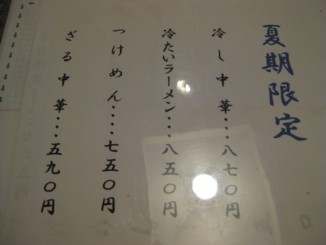 夏期限定
冷し中華・・・八七〇円
冷たいラーメン・・・八五〇円
つけめん・・・・七五〇円
ざる中華・・・五九〇円